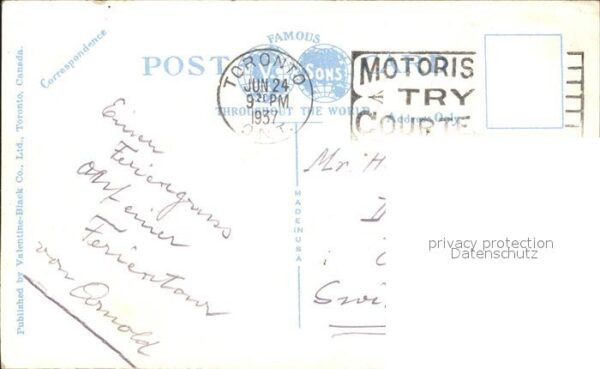 FAMOUS
POST CARD
V. & SONS
THROUGHOUT THE WORLD
TORONTO
JUN 24
9 PM
1937
ONT.
MOTORIS
TRY
COURTE
Address Only
Correspondence
Published by Valentine-Black Co., Ltd., Toronto, Canada.
MADE IN USA
Einen
Feriengruss
auf einer
Ferientour
von Arnold
Mr. H
i
Swi
privacy protection
Datenschutz